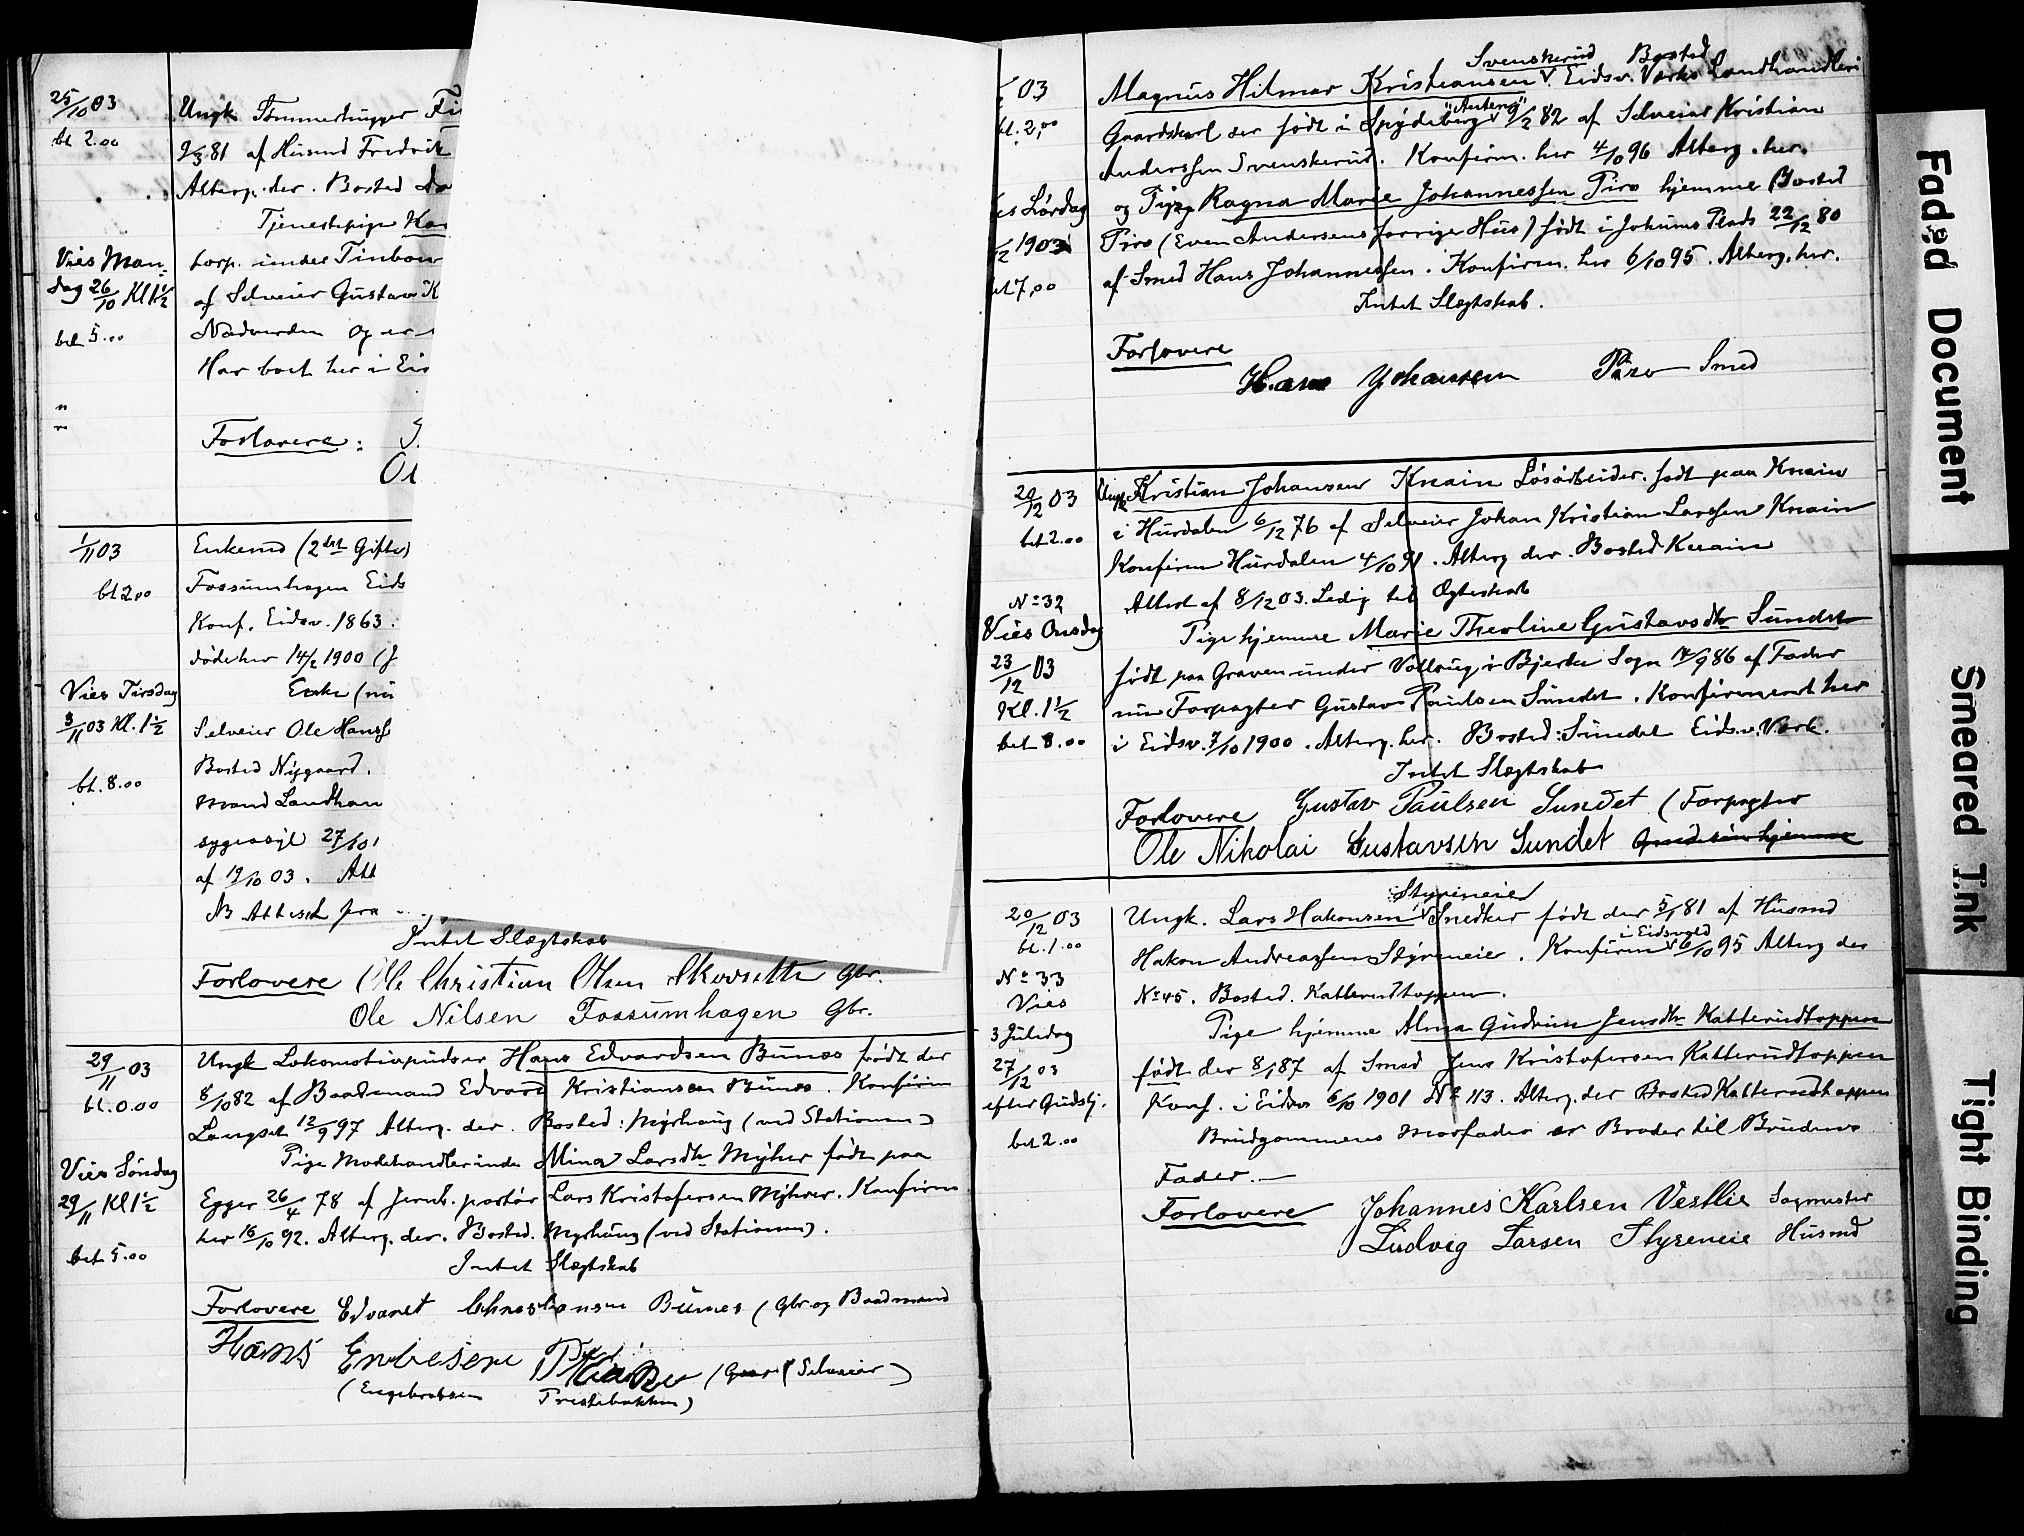 25/10 03
Ungk Tømmerhugger Fi
bt 2.00
9/3 81 af Husmd Fredrik
Alterg. der. Bosted
Tjenestepige Kar
Vies Man-
torp. under Tinbow
dag 26/10 Kl 1 1/2
af Selveier Gustav K
Nadverden og er
bet 5.00
Har boet her i Eid
Forlovere :
Ol
1/11 03
Enkemd (2det Gifte)
bt 2.00
Fossumhagen Eids
Konf. Eidsv. 1863.
døde her 14/2 1900 (J
Vies Tirsdag
Enke (nu
3/11 03 Kl. 1 1/2
Selveier Ole Hanss
Bosted Nygaard.
bt. 8.00
Mand Landhan
sygeasyl 27/10
af 19/10 03. Att
NB Attest fra
Intet Slægtskab
Forlovere Ole Christian Olsen Skovsette Gbr.
Ole Nilsen Fossumhagen Gbr.
29/11 03
Ungk Lokomotivpudser Hans Edvardsen Bunes født der
bt. 0.00
8/10 82 af Baadsmand Edvard Kristiansen Bunes. Konfirm
Langset 12/9 97 Alterg. der. Bosted: Myrhaug (ved Stationen)
Pige Modehandlerinde Mina Larsdtr Myhrer født paa
Vies Søndag
Egger 26/4 78 af Jernb. portør Lars Kristofersen Myhrer. Konfirm
29/11 Kl 1 1/2
her 16/10 92. Alterg. der. Bosted. Myrhaug (ved Stationen).
bet 5.00
Intet Slægtskab
Forlovere Edvardt Christiansen Bunes (Gbr og Baadmand
Hans (Selveier)
(Engebretsen
03
Svenskerud Bosted
Magnus Hilmar Kristiansen v. Eidsv. Værks Landhandleri
bt. 2,00
Gaardskarl der født i Spydeberg "Anteng" 9/2 82 af Selveier Kristian
Anderssen Svenskerud. Konfirm. her 4/10 96 Alterg. her.
Vies Lørdag
og Pige Ragna Marie Johannessen Piro hjemme Bosted
/12 1903
Piro (Even Andersens forrige Hus) født i Johnins Plads 22/12 80
bet 7,00
af Smed Hans Johannessen. Konfirm. her 6/10 95. Alterg. her.
Intet Slægtskab.
Forlovere
Hans Johansen Piro Smed
20/12 03
Ungk Kristian Johansen Knain Løsarbeider. født paa Knain
bet 2.00
i Hurdalen 6/12 76 af Selveier Johan Kristian Larssen Knain
Konfirm Hurdalen 4/10 91. Alterg der. Bosted Knain
No 32
Attest af 8/12 03. Ledig til Ægteskab
Vies Onsdag
Pige hjemme Marie Theoline Gustavsdtr Sundet
23/12 03
født paa Graven under Vollaug i Bjerke Sogn 14/9 86 af Fader
Kl. 1 1/2
nu Forpagter Gustav Paulsen Sundet. Konfirmeret her
bet 8.00
i Eidsv. 7/10 1900. Alterg. her. Bosted: Sundet Eidsv. Værk.
Intet Slægtskab
Forlovere Gustav Paulsen Sundet (Forpagter
Ole Nikolai Gustavsen Sundet
20/12 03
Styreneier
Ungk. Lars Hakonsen v Snedker født der 5/1 81 af Husmd
bt. 1.00
Hakon Andreassen Styreneier. Konfirm i Eidsvold 6/10 95 Alterg der
No 33
No 45. Bosted. Katterudtoppen.
Vies
Pige hjemme Alma Gudrun Jensdtr Katterudtoppen
3 Juledag
født der 8/1 87 af Smed Jens Kristofersen Katterudtoppen
27/12 03
Konf. i Eidsv 6/10 1901 No 113. Alterg. der Bosted Katterudtoppen
efter Gudstj.
Brudgommens Morfader er Broder til Brudens
bet 2.00
Fader.—
Forlovere Johannes Karlsen Vestlie Sagmester
Ludvig Larsen Styreneie Husmd
Faded Document
Smeared Ink
Tight Binding